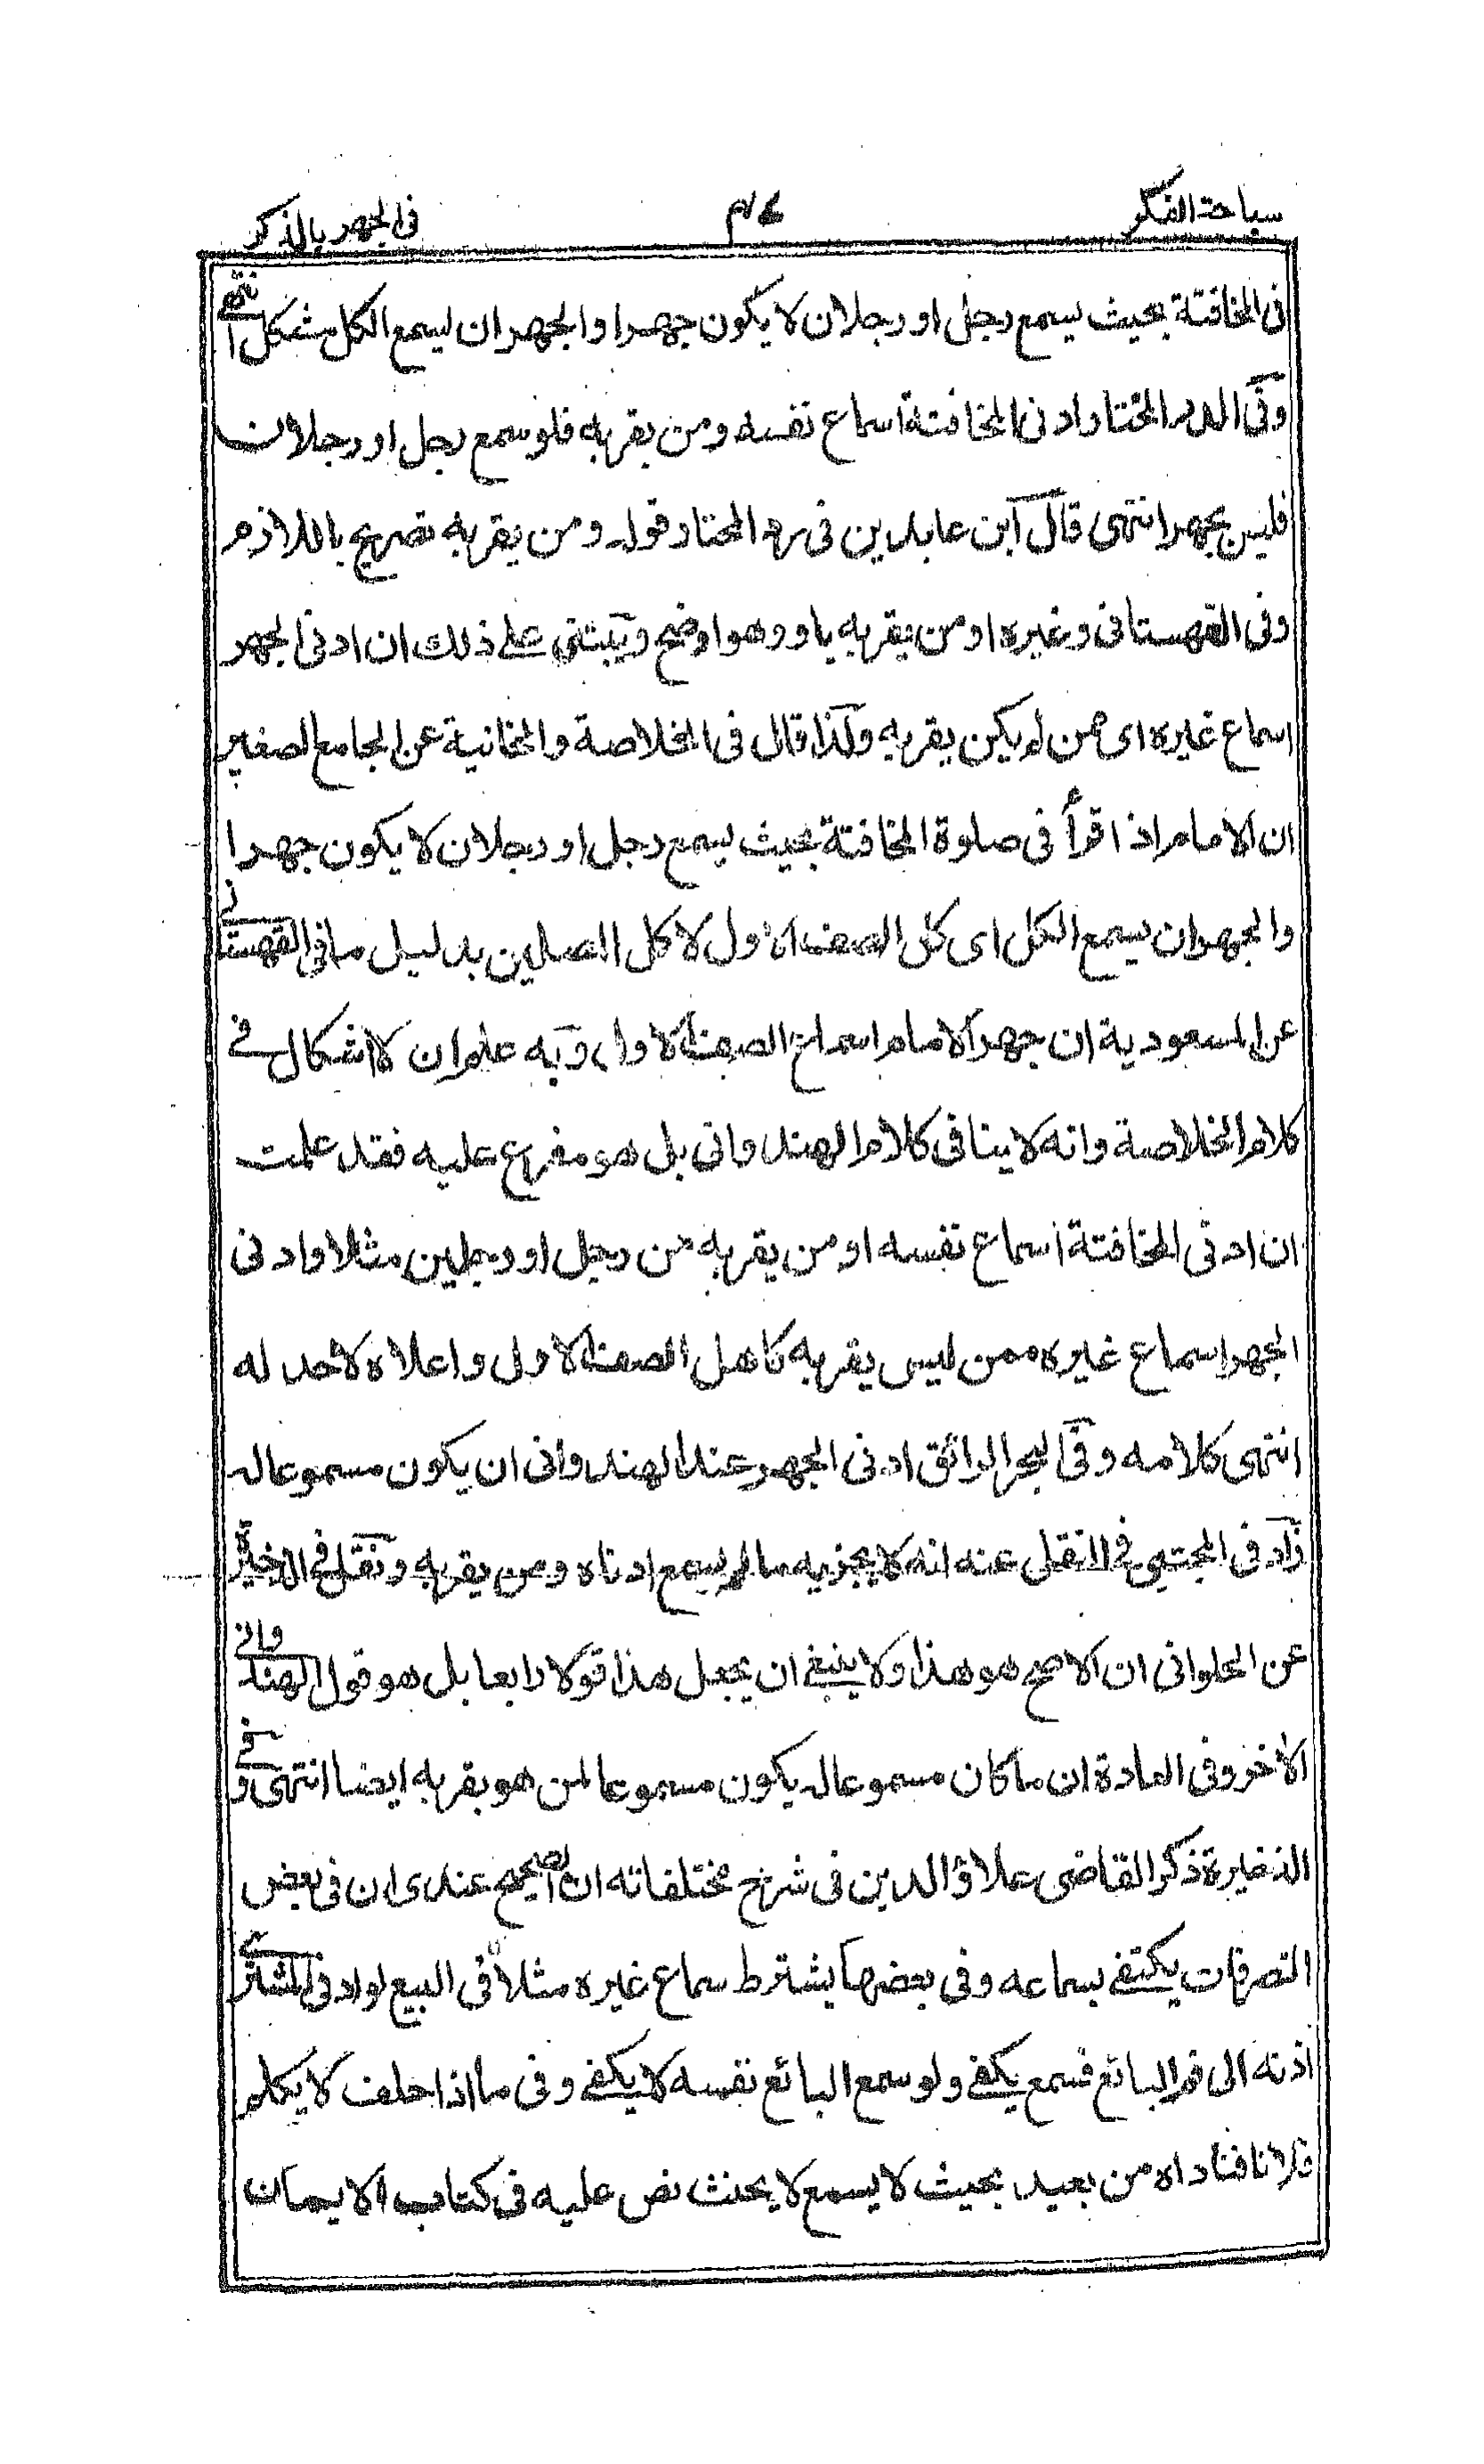 سباحة الفكر
في الجهر بالذكر
في المخافتة بحيث يسمع رجل او رجلان لا يكون جهرا والجهر ان يسمع الكل مشكل انتهى
وفي الدر المختار وادنى المخافتة اسماع نفسه ومن بقربه فلو سمع رجل او رجلان
فليس بجهر انتهى قال ابن عابدين في رد المحتار قوله ومن بقربه تصريح باللازم
وفي القهستاني وغيره او من بقربه باو وهو اوضح ويبتنى على ذلك ان ادنى الجهر
اسماع غيره اى ممن لم يكن بقربه ولذا قال في الخلاصة والخانية عن الجامع الصغير
ان الامام اذا قرأ في صلوة المخافتة بحيث يسمع رجل او رجلان لا يكون جهرا
والجهر ان يسمع الكل اى كل الصف الاول لا كل المصلين بدليل ما في القهستاني
عن المسعودية ان جهر الامام اسماع الصف الاول وبه علم ان لا اشكال في
كلام الخلاصة وانه لا ينافى كلام الهندواني بل هو مفرع عليه فقد علمت
ان ادنى المخافتة اسماع نفسه او من بقربه من رجل او رجلين مثلا وادنى
الجهر اسماع غيره ممن ليس بقربه كاهل الصف الاول واعلاه لا حد له
انتهى كلامه وفي البحر الرائق ادنى الجهر عند الهندواني ان يكون مسموعا له
زاد في المجتبى في النقل عنه انه لا يجزيه ما لم يسمع ادناه ومن بقربه ونقل في الذخيرة
عن الحلواني ان الاصح هو هذا ولا ينبغي ان يجعل هذا قولا رابعا بل هو قول الهندواني
الاخر وفي العادة ان ما كان مسموعا له يكون مسموعا لمن هو بقربه ايضا انتهى وفي
الذخيرة ذكر القاضى علاؤ الدين في شرح مختلفاته ان الصحيح عندى ان في بعض
التصرفات يكتفى بسماعه وفي بعضها يشترط سماع غيره مثلا في البيع لو ادنى المشترى
اذنه الى فم البائع فسمع يكفى ولو سمع البائع نفسه لا يكفى وفي ما اذا حلف لا يكلم
فلانا فناداه من بعيد بحيث لا يسمع لا يحنث نص عليه في كتاب الايمان